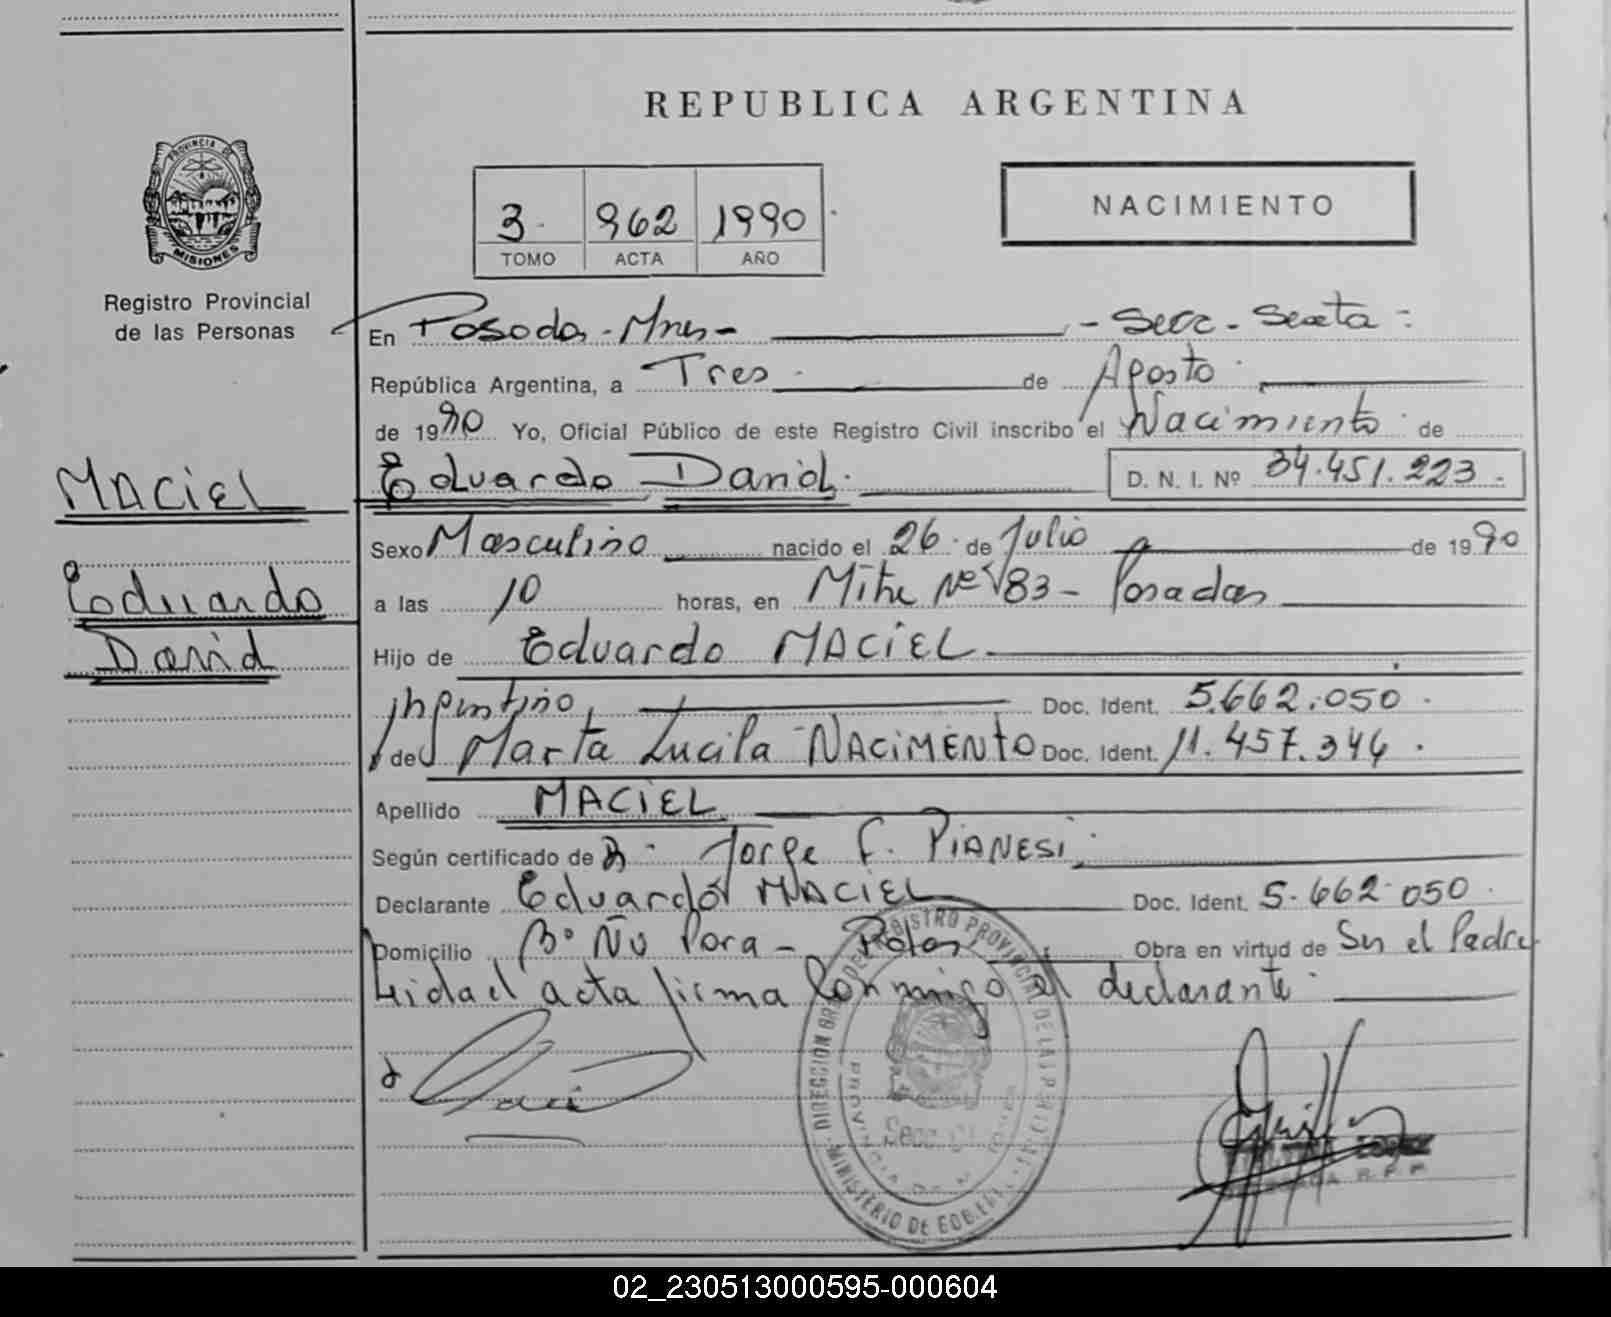 REPUBLICA ARGENTINA
PROVINCIA DE
MISIONES
Registro Provincial
de las Personas
3 962 1990
TOMO ACTA AÑO
NACIMIENTO
En Posadas - Mnes - - Secc. Sexta -
República Argentina, a Tres de Agosto
de 1990 Yo, Oficial Público de este Registro Civil inscribo el Nacimiento de
Eduardo David. D. N. I. Nº 34.451.223 -
MACIEL
Eduardo
David
Sexo Masculino nacido el 26 de Julio de 1990
a las 10 horas, en Mitre Nº 183 - Posadas
Hijo de Eduardo MACIEL
Argentino Doc. Ident. 5.662.050
de Marta Lucila NACIMENTO Doc. Ident. 11.457.344
Apellido MACIEL
Según certificado de Jorge F. PIANESI
Declarante Eduardo MACIEL Doc. Ident. 5.662.050
Domicilio Bº Ñu Pora - Obra en virtud de Ser el Padre
Leida el acta firma conmigo el declarante
REGISTRO PROVINCIAL DE LAS
MINISTERIO DE GOB.
PROVINCIA DE
LOPEZ
02_230513000595-000604